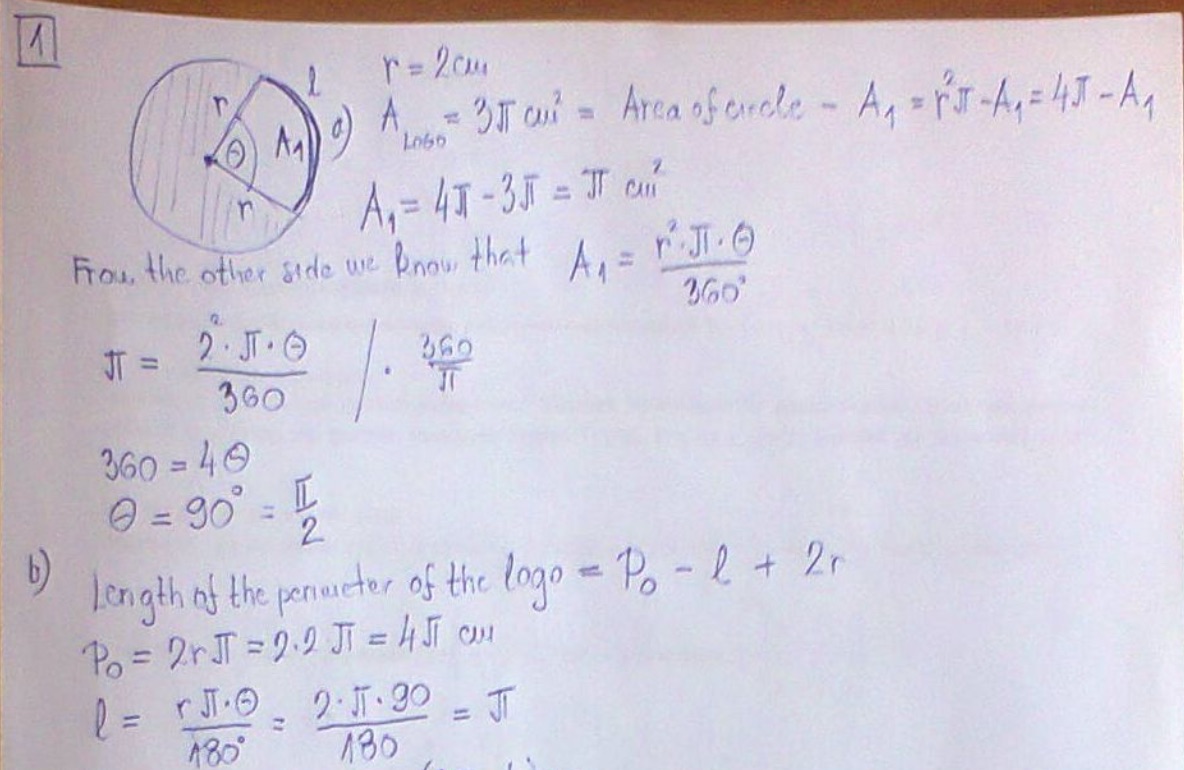 1
r l
Θ A₁
r
r = 2cm
a) A_LOGO = 3π cm² = Area of circle - A₁ = r²π - A₁ = 4π - A₁
A₁ = 4π - 3π = π cm²
From the other side we know that A₁ = r²·π·Θ / 360°
π = 2²·π·Θ / 360 / · 360/π
360 = 4Θ
Θ = 90° = π/2
b) Length of the perimeter of the logo = P₀ - l + 2r
P₀ = 2rπ = 2·2π = 4π cm
l = rπ·Θ / 180° = 2·π·90 / 180 = π